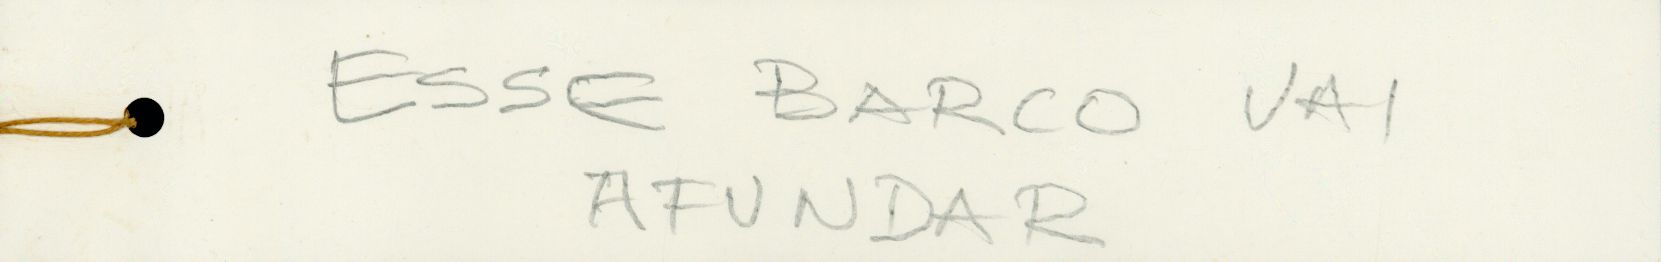 ESSE BARCO VAI
AFUNDAR